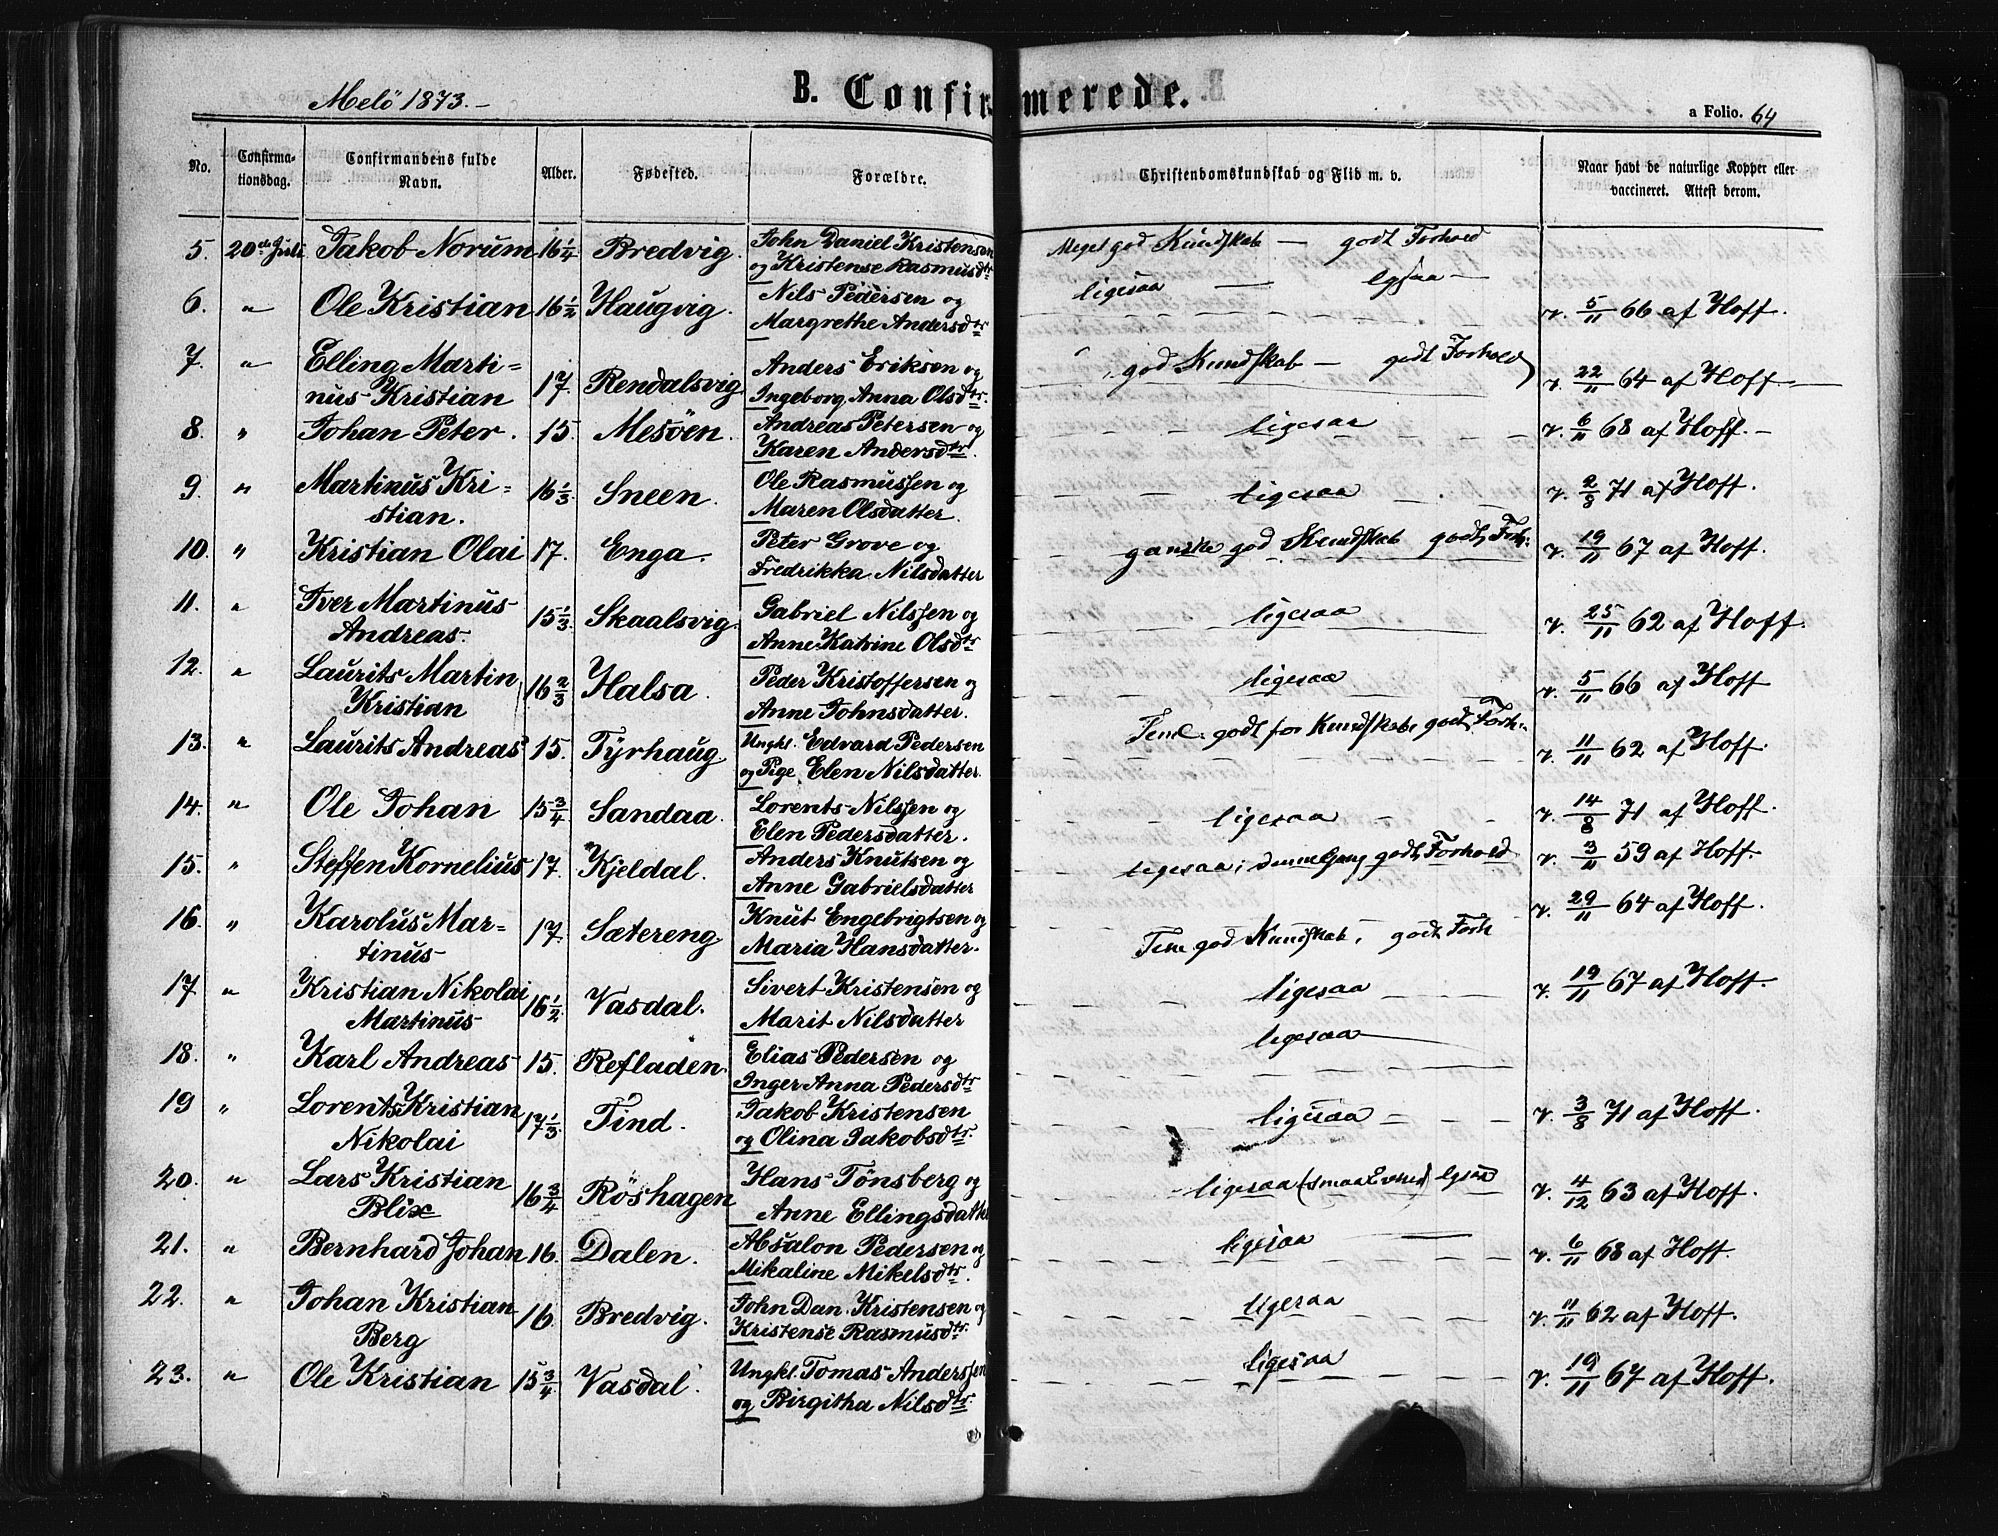 Melö 1873.-
B. Confirmerede.
a Folio. 64
No. Confirmationsdag. Confirmandens fulde Navn. Alder. Fødested. Forældre. Christendomskundskab og Flid m. v. Naar havt de naturlige Kopper eller vaccineret. Attest derom.
5. 20de Juli Jakob Norum 16 1/4 Bredvig. John Daniel Kristensen Meget god Kundskab — godt Forhold
og Kristense Rasmusdtr
6. " Ole Kristian 16 1/2 Haugvig. Nils Pedersen og ligesaa — lgsaa — v. 5/11 66 af Hoff.
Margrethe Andersdtr
7. " Elling Marti= 17. Rendalsvig Anders Eriksen og god Kundskab — godt Forhold v. 22/11 64 af Hoff —
nus Kristian Ingeborg Anna Olsdtr.
8. " Johan Peter. 15. Mesöen. Andreas Petersen og ligesaa v. 6/11 68 af Hoff. -
Karen Andersdtr.
9. " Martinus Kri- 16 1/3 Sneen. Ole Rasmussen og ligesaa v. 2/8 71 af Hoff.
stian. Maren Olsdatter.
10. " Kristian Olai 17. Enga. Peter Grove og ganske god Kundskab godt Forh. v. 19/11 67 af Hoff.
Fredrikka Nilsdatter
11. " Iver Martinus 15 1/3 Skaalsvig. Gabriel Nilssen og ligesaa v. 25/11 62 af Hoff.
Andreas. Anne Katrine Olsdtr
12. " Laurits Martin 16 2/3 Halsa. Peder Kristoffersen og ligesaa v. 5/11 66 af Hoff
Kristian Anne Johnsdatter.
13. " Laurits Andreas 15. Tyrhaug Ungkl. Edvard Pedersen godt for Kundskab, godt Forh. v. 11/11 62 af Hoff.
og Pige Elen Nilsdatter.
14. " Ole Johan 15 3/4 Sandaa. Lorents Nilssen og ligesaa v. 14/8 71 af Hoff.
Elen Pedersdatter.
15. " Steffen Kornelius 17. Kjeldal. Anders Knutsen og ligesaa; denne Gang godt Forhold v. 3/11 59 af Hoff.
Anne Gabrielsdatter
16. " Karolus Mar- 17. Sætereng Knut Engebrigtsen og god Kundskab, godt Forh v. 29/11 64 af Hoff.
tinus Maria Hansdatter.
17 " Kristian Nikolai 16 1/2 Vasdal. Sivert Kristensen og ligesaa v. 19/11 67 af Hoff.
Martinus Marit Nilsdatter
18. " Karl Andreas 15. Refladen. Elias Pedersen og ligesaa
Inger Anna Pedersdtr
19 " Lorents Kristian 17 1/3. Tind. Jakob Kristensen ligesaa v. 3/8 71 af Hoff.
Nikolai og Olina Jakobsdtr.
20. " Lars Kristian 16 3/4 Röshagen Hans Tönsberg og ligesaa (smaa Evner) lgsaa v. 4/12 63 af Hoff.
Blix Anne Ellingsdatter
21. " Bernhard Johan 16. Dalen. Absalon Pedersen og ligesaa v. 6/11 68 af Hoff.
Mikaline Mikelsdtr.
22. " Johan Kristian 16. Bredvig. John Dan. Kristensen og ligesaa v. 11/11 62 af Hoff.
Berg Kristense Rasmusdtr.
23. " Ole Kristian 15 3/4 Vasdal. Ungkl. Tomas Anderssen ligesaa v. 19/11 67 af Hoff.
og Birgitha Nilsdtr.